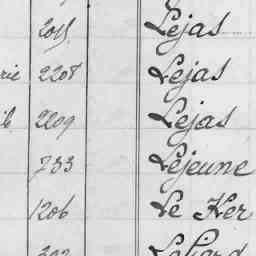 Lejas
rie 2208 Lejas
2209 Lejas
733 Lejeune
1206 Le Ker